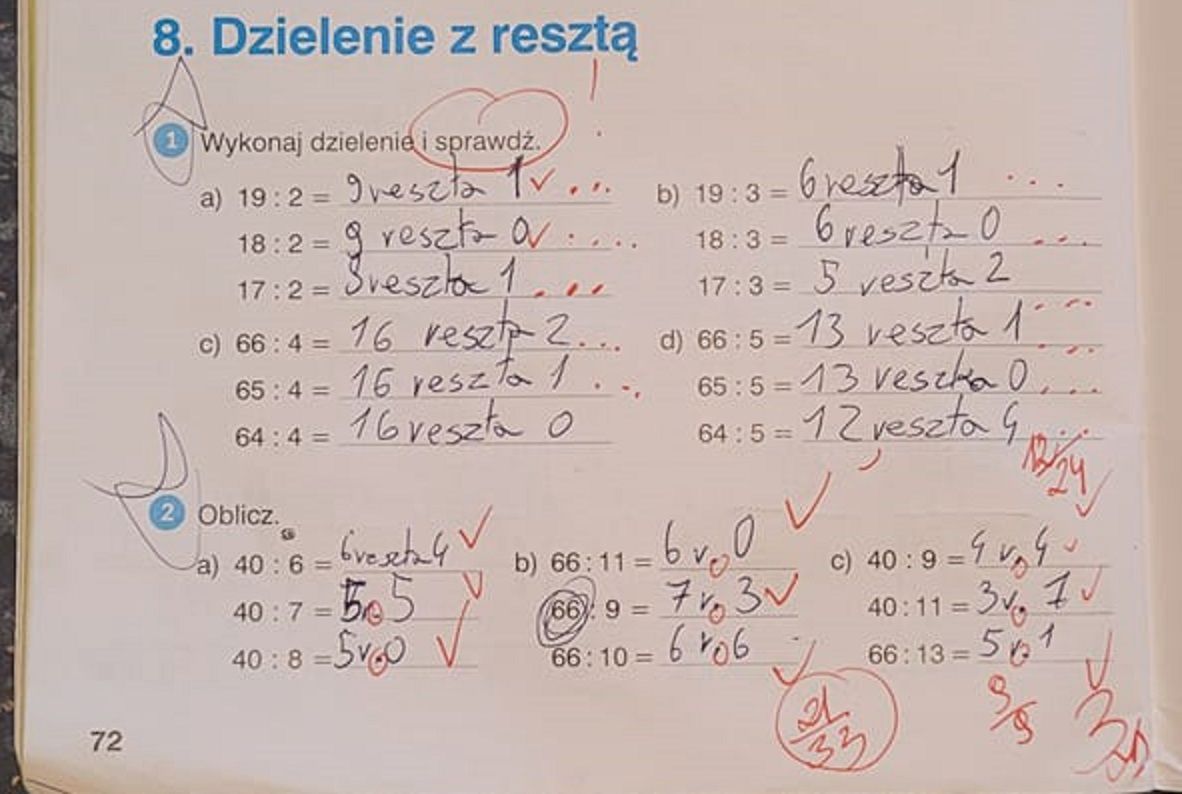 8. Dzielenie z resztą
!
1 Wykonaj dzielenie i sprawdź.
a) 19 : 2 = 9 reszta 1 ...
18 : 2 = 9 reszta 0 ....
17 : 2 = 8 reszta 1 ...
b) 19 : 3 = 6 reszta 1 ...
18 : 3 = 6 reszta 0 ...
17 : 3 = 5 reszta 2 ...
c) 66 : 4 = 16 reszta 2 ...
65 : 4 = 16 reszta 1 ...
64 : 4 = 16 reszta 0
d) 66 : 5 = 13 reszta 1 ...
65 : 5 = 13 reszta 0 ...
64 : 5 = 12 reszta 4 ...
12/24
2 Oblicz.
a) 40 : 6 = 6 reszta 4
40 : 7 = 5 r. 5
40 : 8 = 5 r. 0
b) 66 : 11 = 6 r. 0
66 : 9 = 7 r. 3
66 : 10 = 6 r. 6
c) 40 : 9 = 4 r. 4
40 : 11 = 3 r. 7
66 : 13 = 5 r. 1
9/9
21/33
72